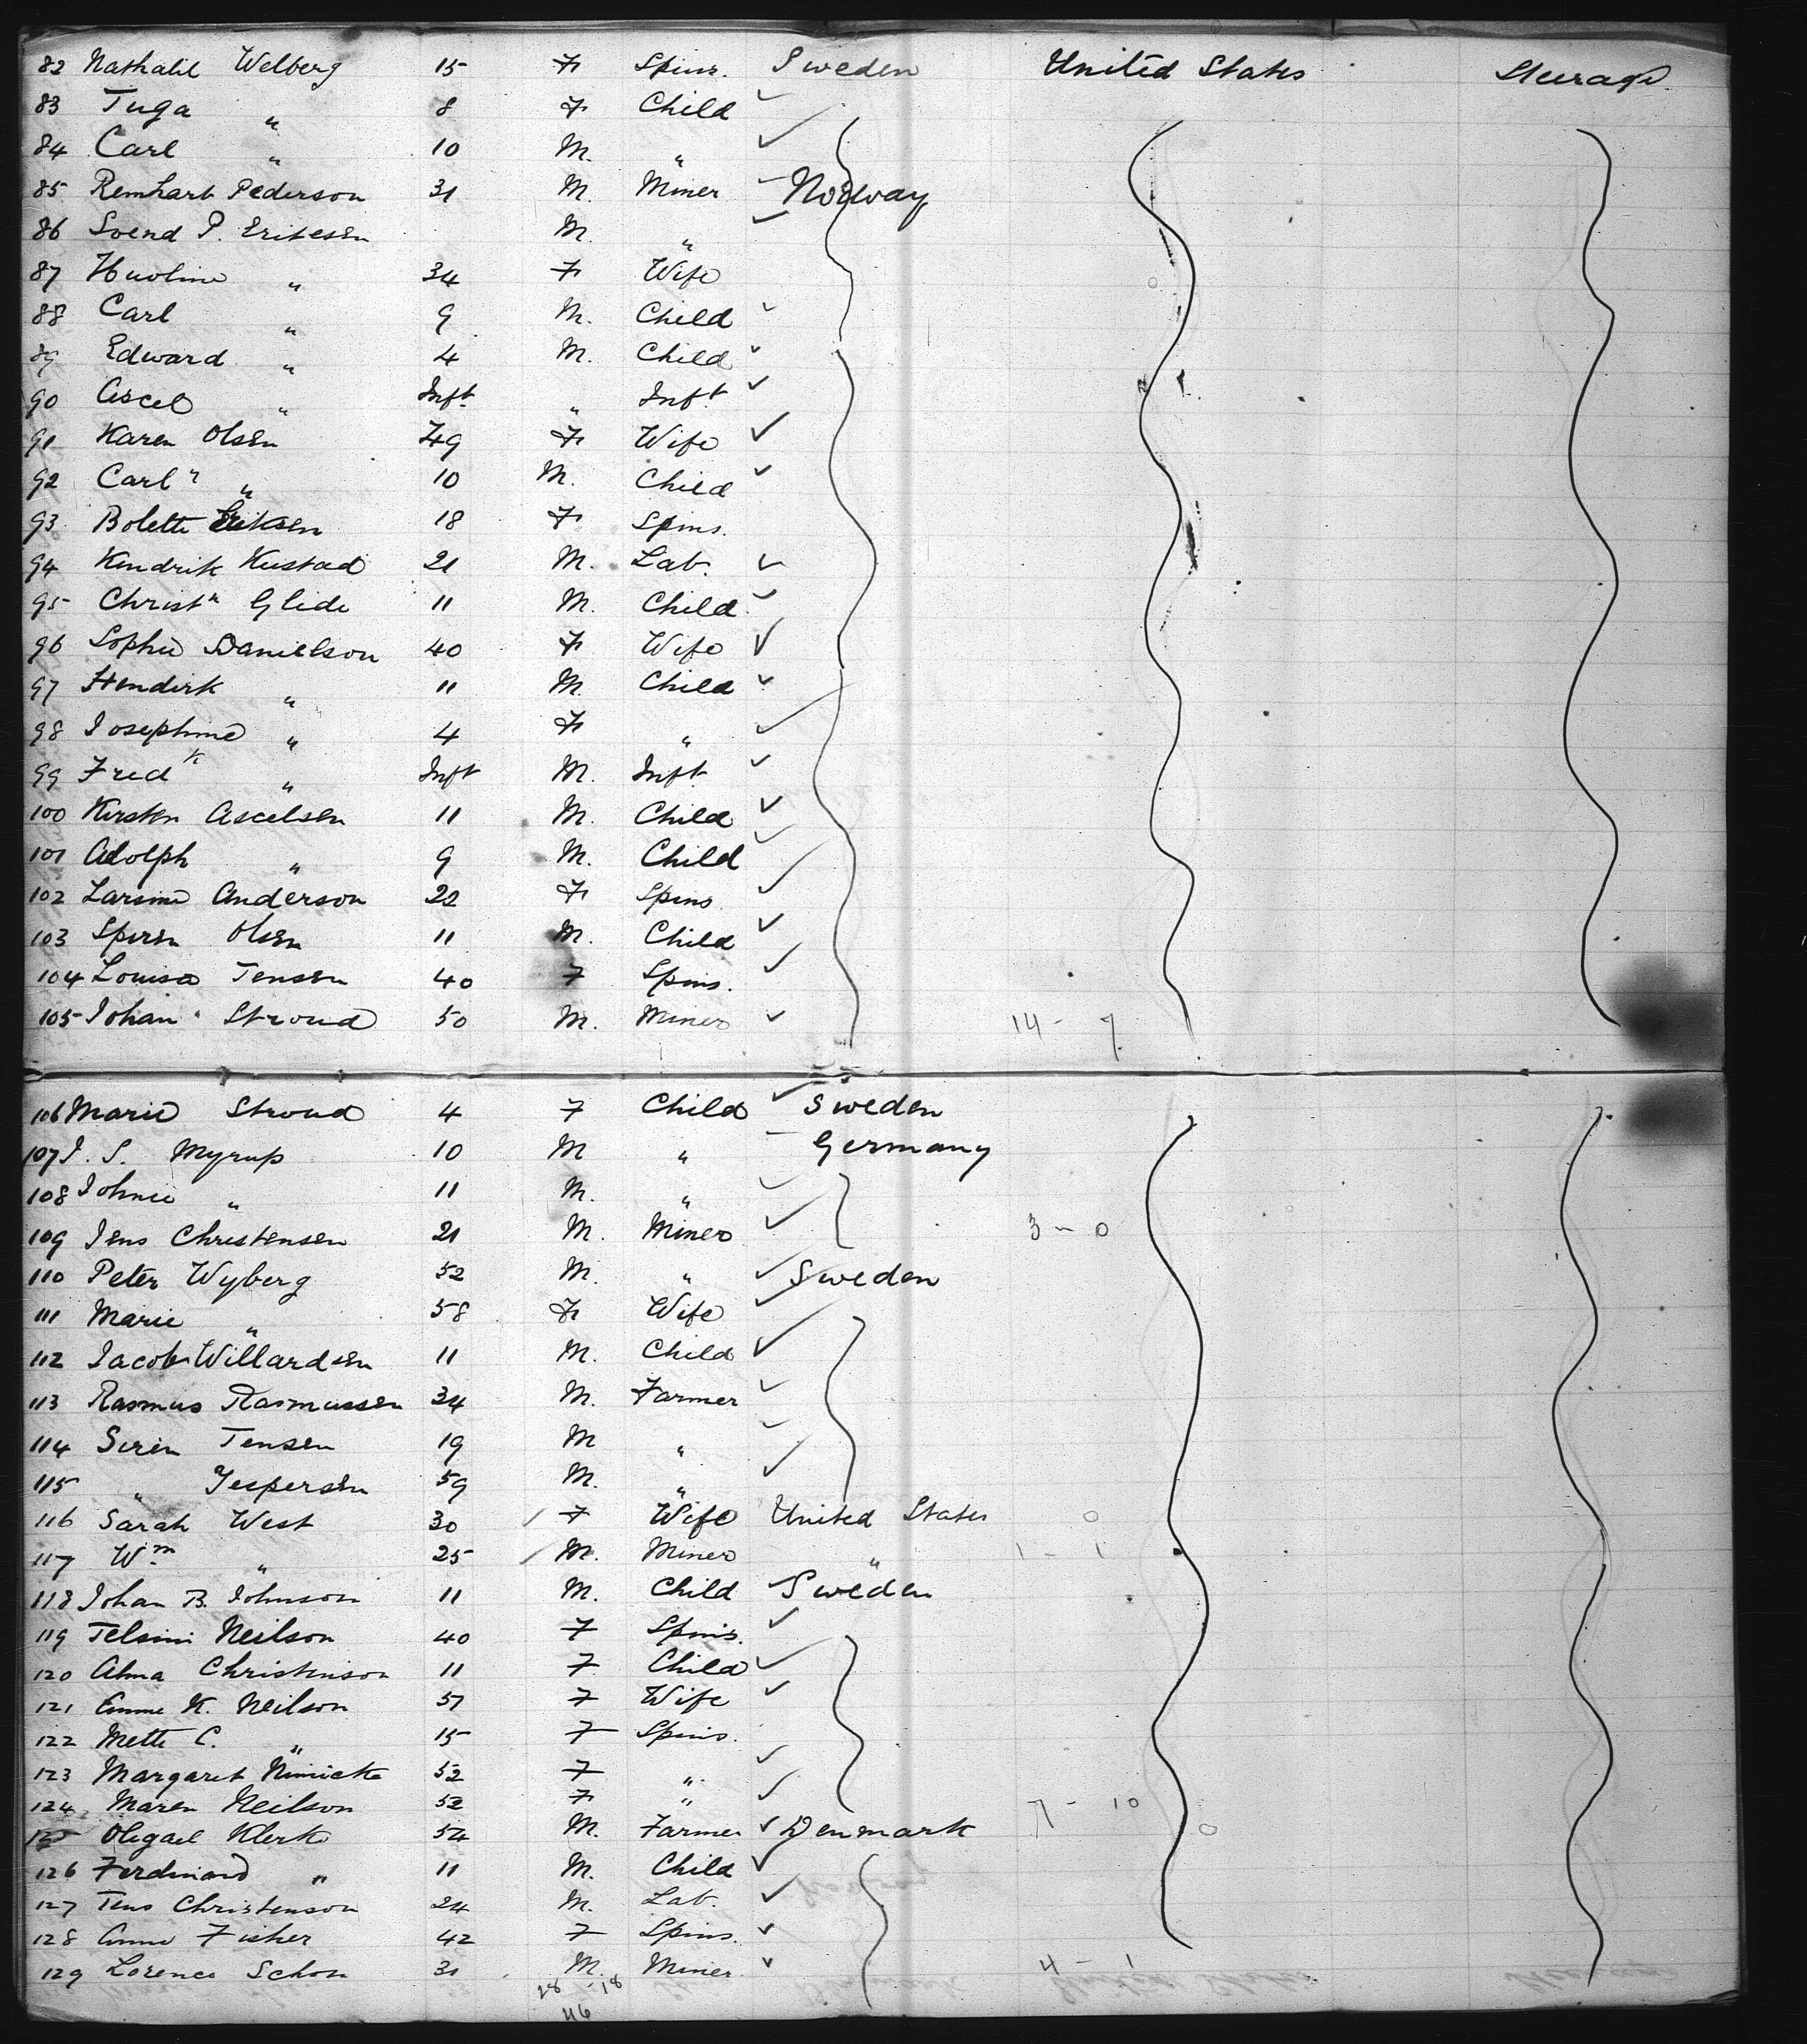 82 Nathalil Welberg 15 F Spins. Sweden United States Steerage
83 Tuga " 8 F Child
84 Carl " 10 M. "
85 Remhart Pederson 31 M. Miner Norway
86 Svend P. Eriksen M. "
87 " 34 F Wife
88 Carl " 9 M. Child
89 Edward " 4 M. Child
90 Ascel " Inft " Inft
91 Karen Olsen 49 F Wife
92 Carl " 10 M. Child
93 Bolette Eriksen 18 F Spins.
94 Hendrik Kustad 21 M. Lab.
95 Christn Glide 11 M. Child
96 Sophie Danielson 40 F Wife
97 Hendirk " 11 M. Child
98 Josephine " 4 F "
99 Fredk " Inft M. Inft
100 Kirsten Ascelsen 11 M. Child
101 Adolph " 9 M. Child
102 Larsine Anderson 22 F Spins
103 Spiren Olsen 11 M. Child
104 Louisa Jensen 40 F Spins.
105 Johan Stroud 50 M. Miner 14 - 7
106 Marie Stroud 4 F Child Sweden
107 J. S. Myrup 10 M " Germany
108 Johnie " 11 M. "
109 Jens Christensen 21 M. Miner 3 - 0
110 Peter Wyberg 52 M. " Sweden
111 Marie " 58 F Wife
112 Jacob Willardsen 11 M. Child
113 Rasmus Rasmussen 34 M. Farmer
114 Seren Jensen 19 M "
115 " Jespersen 59 M. "
116 Sarah West 30 F Wife United States 0
117 Wm " 25 M. Miner " 1 - 1
118 Johan B. Johnson 11 M. Child Sweden
119 Telsini Neilson 40 F Spins.
120 Alma Christenson 11 F Child
121 Emme K. Neilson 57 F Wife
122 Mette C. " 15 F Spins.
123 Margaret Nimicke 52 F "
124 Maren Neilson 52 F " 7 - 10
125 Olegael Klerk 54 M. Farmer Denmark 0
126 Ferdinand " 11 M. Child
127 Jens Christenson 24 M. Lab.
128 Anne Fisher 42 F Spins.
129 Lorence Schon 31 M. Miner 4 - 1
28 - 18
46